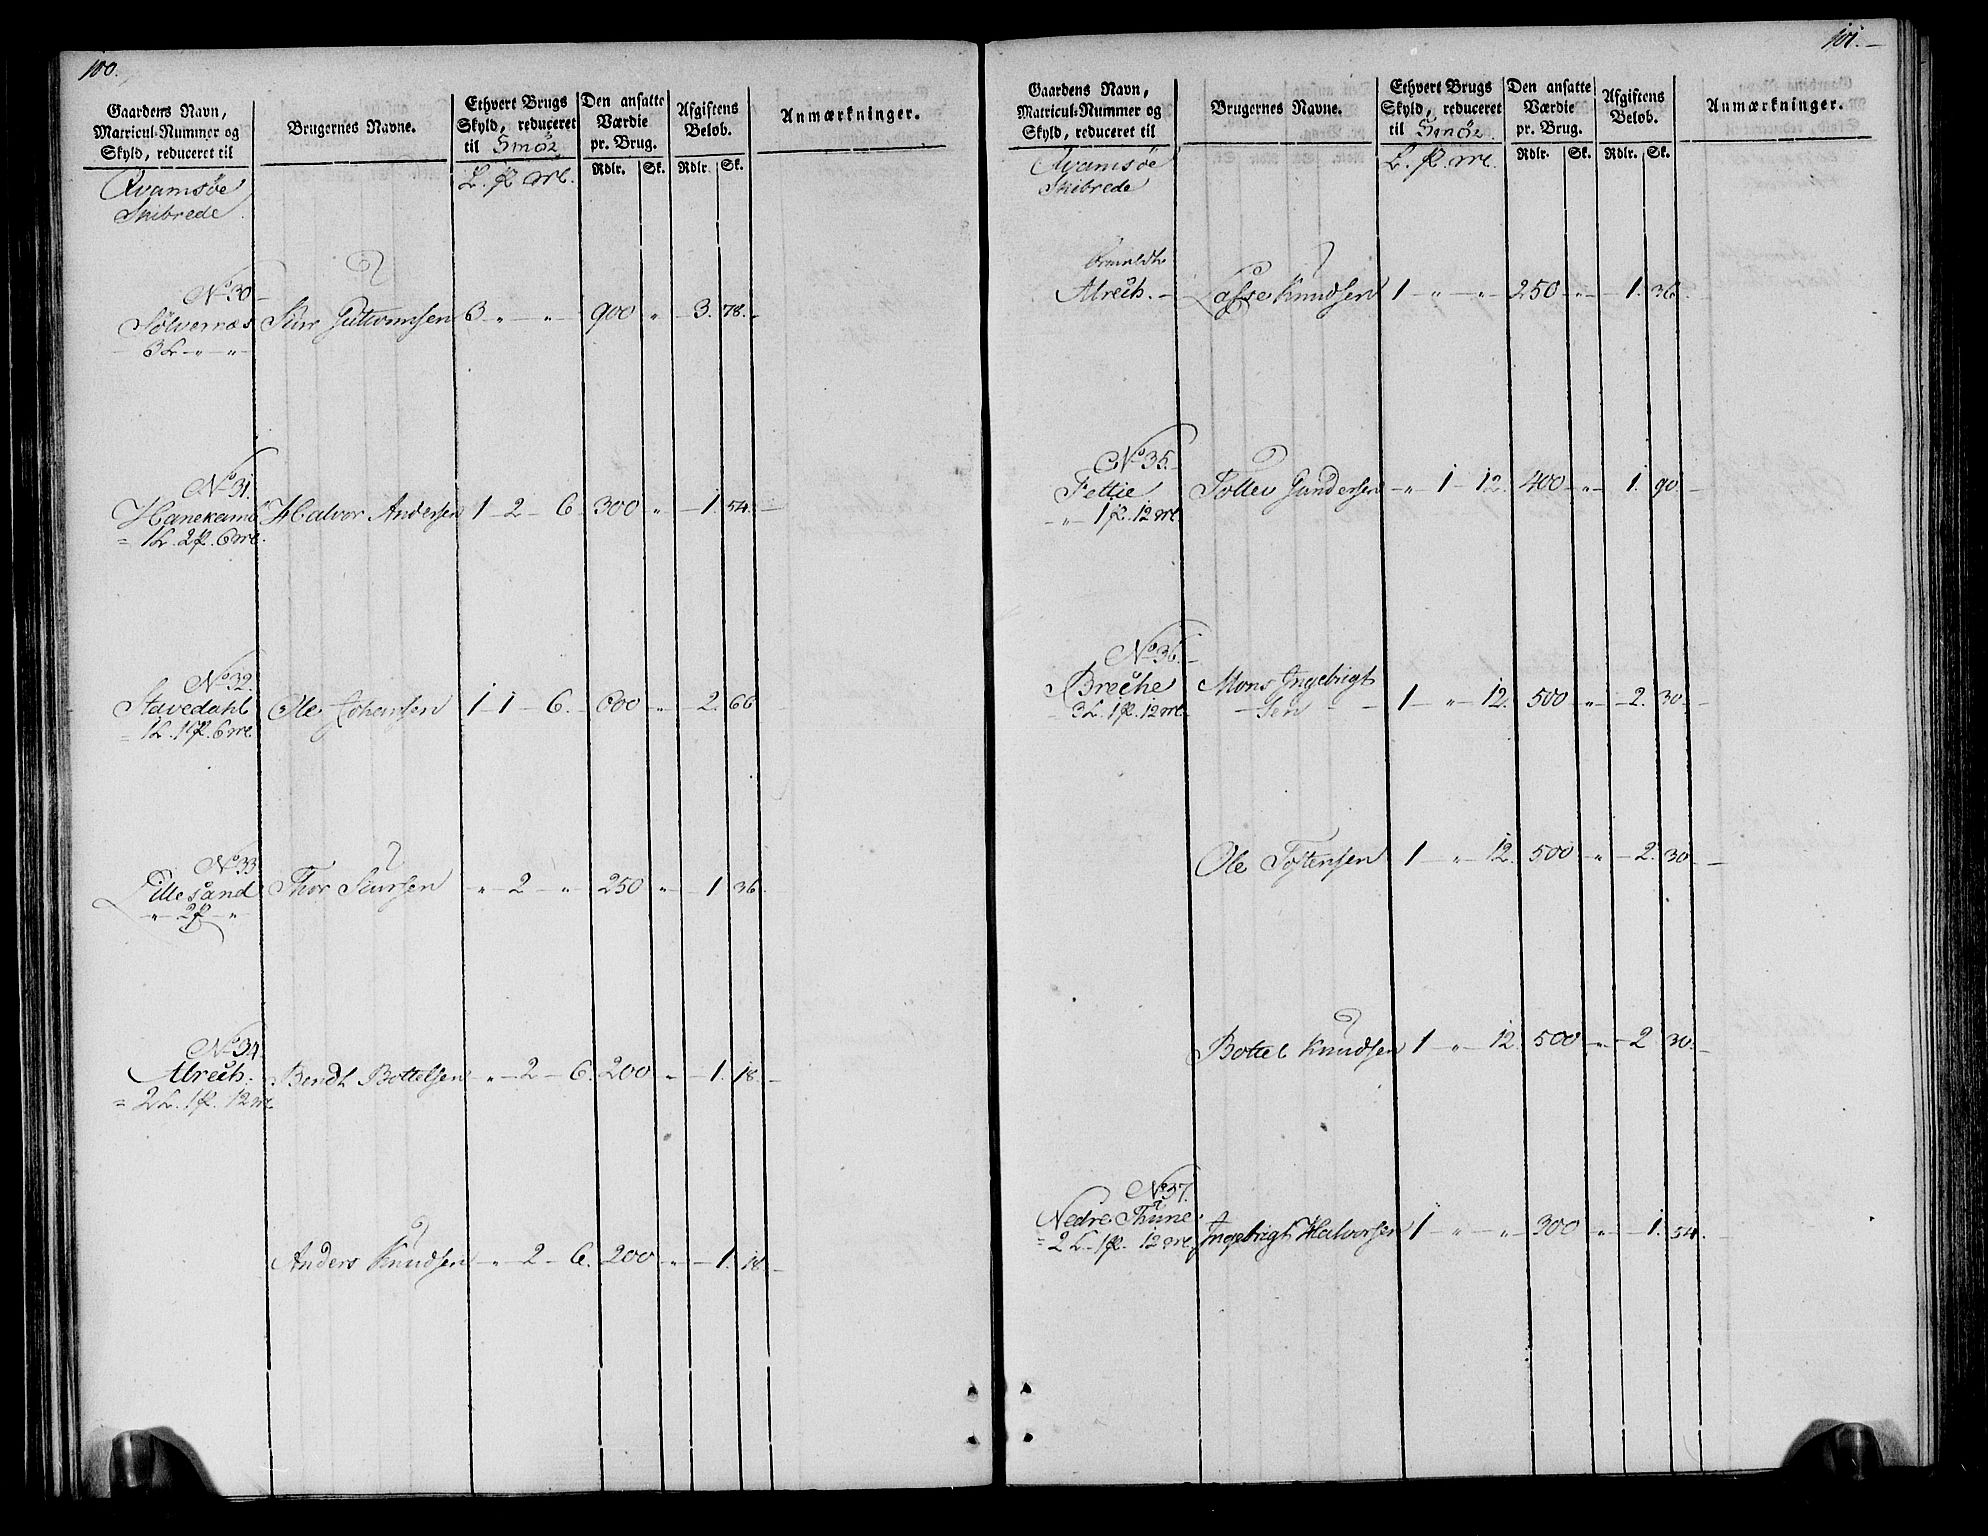 100.
Gaardens Navn,
Matricul-Nummer og
Skyld, reduceret til
Brugernes Navne.
Ethvert Brugs
Skyld, reduceret
til Smør
Den ansatte
Værdie
pr. Brug.
Rdlr. Sk.
Afgiftens
Beløb.
Rdlr. Sk.
Anmærkninger.
Qvamsøe
Skibrede
L. p. mrc.
No 30
Sølvernæs Siur Guttormsen 3 - " - " 900 " 3. 78.
3 L - " - "
No 31.
Hanekamb Halvor Andersen 1 - 2 - 6. 300 " 1. 54.
= 1 L. 2 p. 6 mrc.
No 32.
Stavedahl Ole Johansen 1 - 1 - 6. 600 " 2. 66
= 1 L. 1 p. 6 mrc.
No 33
Lillesand Thor Siursen " - 2 - " 250 " 1. 36.
" - 2 p - "
No 34
Alrech Bendt Bottelsen " - 2 - 6. 200 " 1. 18.
= 2 L. 1 p. 12 mrc.
Anders Knudsen " - 2 - 6. 200 " 1. 18.
101.
Gaardens Navn,
Matricul-Nummer og
Skyld, reduceret til
Brugernes Navne.
Ethvert Brugs
Skyld, reduceret
til Smør
Den ansatte
Værdie
pr. Brug.
Rdlr. Sk.
Afgiftens
Beløb.
Rdlr. Sk.
Anmærkninger.
Qvamsøe
Skibrede
L. p. mrc.
Alrech. Lasse Knudsen 1 - " - " 250 " 1. 36.
No 35.
Fettie Tollev Gundersen " 1 - 12. 400 " 1. 90.
" - 1 p. 12 mrc.
No 36.
Breche Mons Ingebrigt
3 L. 1 p. 12 mrc. sen 1 - " - 12. 500 " 2. 30.
Ole Tostensen 1 - " 12. 500 " 2. 30
Bottel Knudsen 1 - " - 12. 500 " 2 30.
No 37.
Nedre Thune Ingebrigt Halvorsen 1 - " - " 300 " 1. 54.
= 2 L. 1 p. 12 mrc.